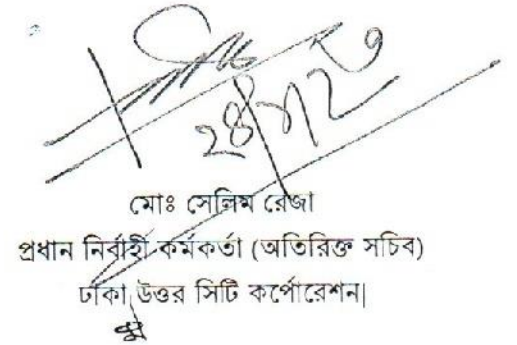 মোঃ সেলিম রেজা
প্রধান নির্বাহী কর্মকর্তা (অতিরিক্ত সচিব)
ঢাকা উত্তর সিটি কর্পোরেশন|